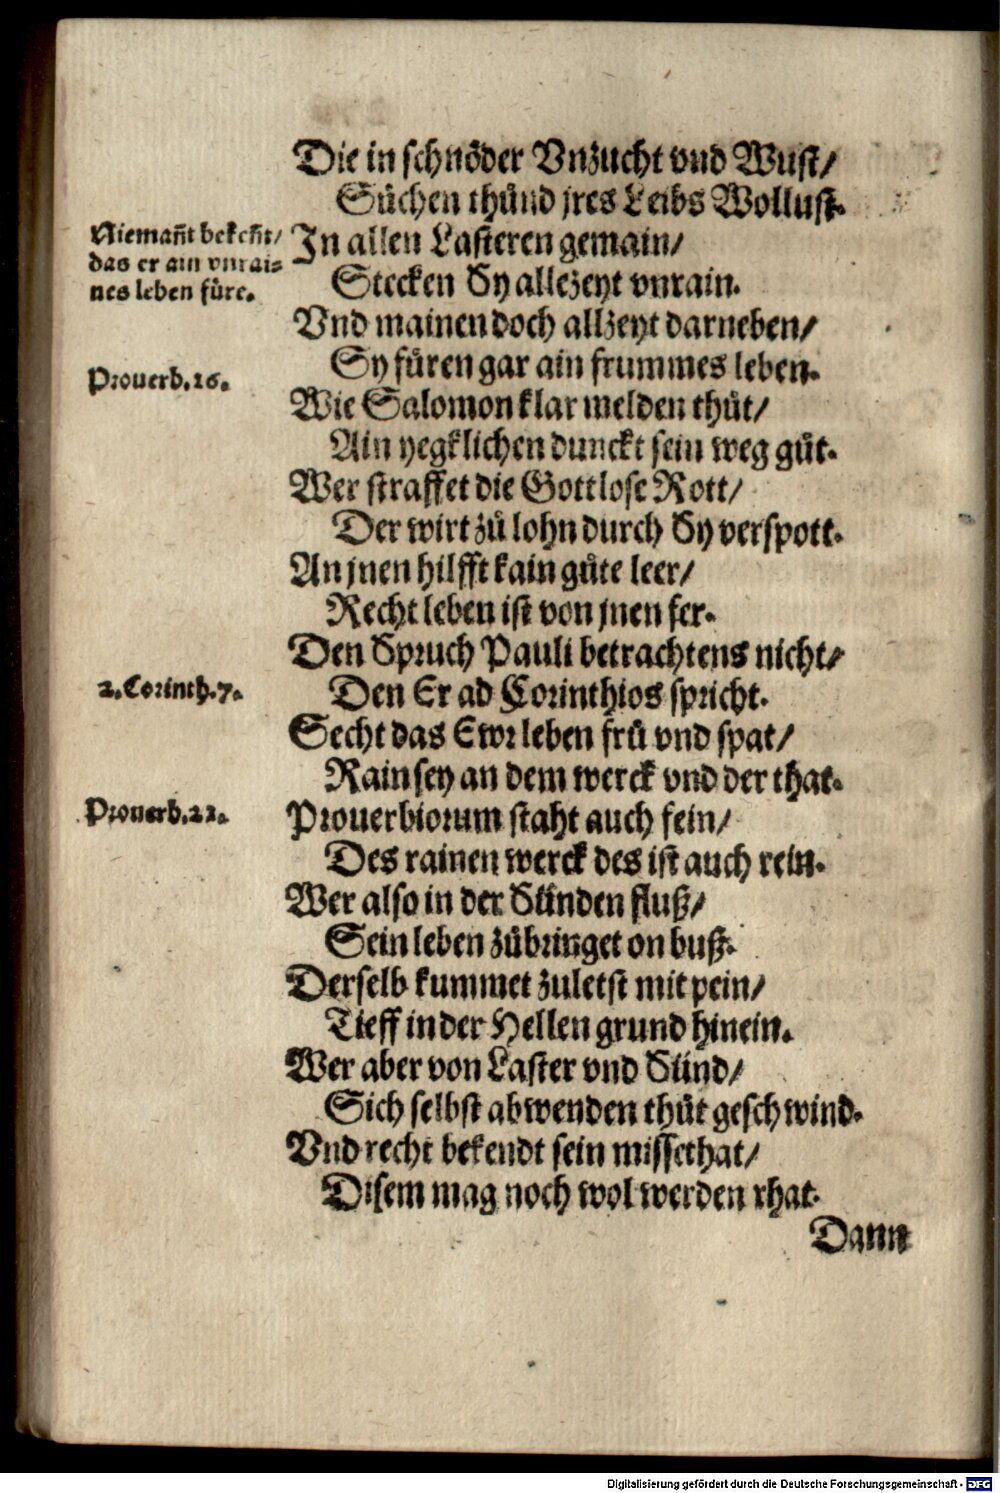 Die in schnöder Vnzucht vnd Wust/
Sůchen thůnd jres Leibs Wollust.
Niemañt bekeñt/
das er ain vnrai⸗
nes leben füre.
In allen Lasteren gemain/
Stecken Sy allezeyt vnrain.
Vnd mainen doch allzeyt darneben/
Sy füren gar ain frummes leben.
Prouerb.16.
Wie Salomon klar melden thůt/
Ain yegklichen dunckt sein weg gůt.
Wer straffet die Gottlose Rott/
Der wirt zů lohn durch Sy verspott.
An jnen hilfft kain gůte leer/
Recht leben ist von jnen fer.
Den Spruch Pauli betrachtens nicht/
2.Corinth.7.
Den Er ad Corinthios spricht.
Secht das Ewr leben frů vnd spat/
Rain sey an dem werck vnd der that.
Prouerb.21.
Prouerbiorum staht auch fein/
Des rainen werck des ist auch rein.
Wer also in der Sünden fluß/
Sein leben zůbringet on buß.
Derselb kummet zuletst mit pein/
Tieff in der Hellen grund hinein.
Wer aber von Laster vnd Sünd/
Sich selbst abwenden thůt geschwind.
Vnd recht bekendt sein missethat/
Disem mag noch wol werden rhat.
Dann
Digitalisierung gefördert durch die Deutsche Forschungsgemeinschaft - DFG